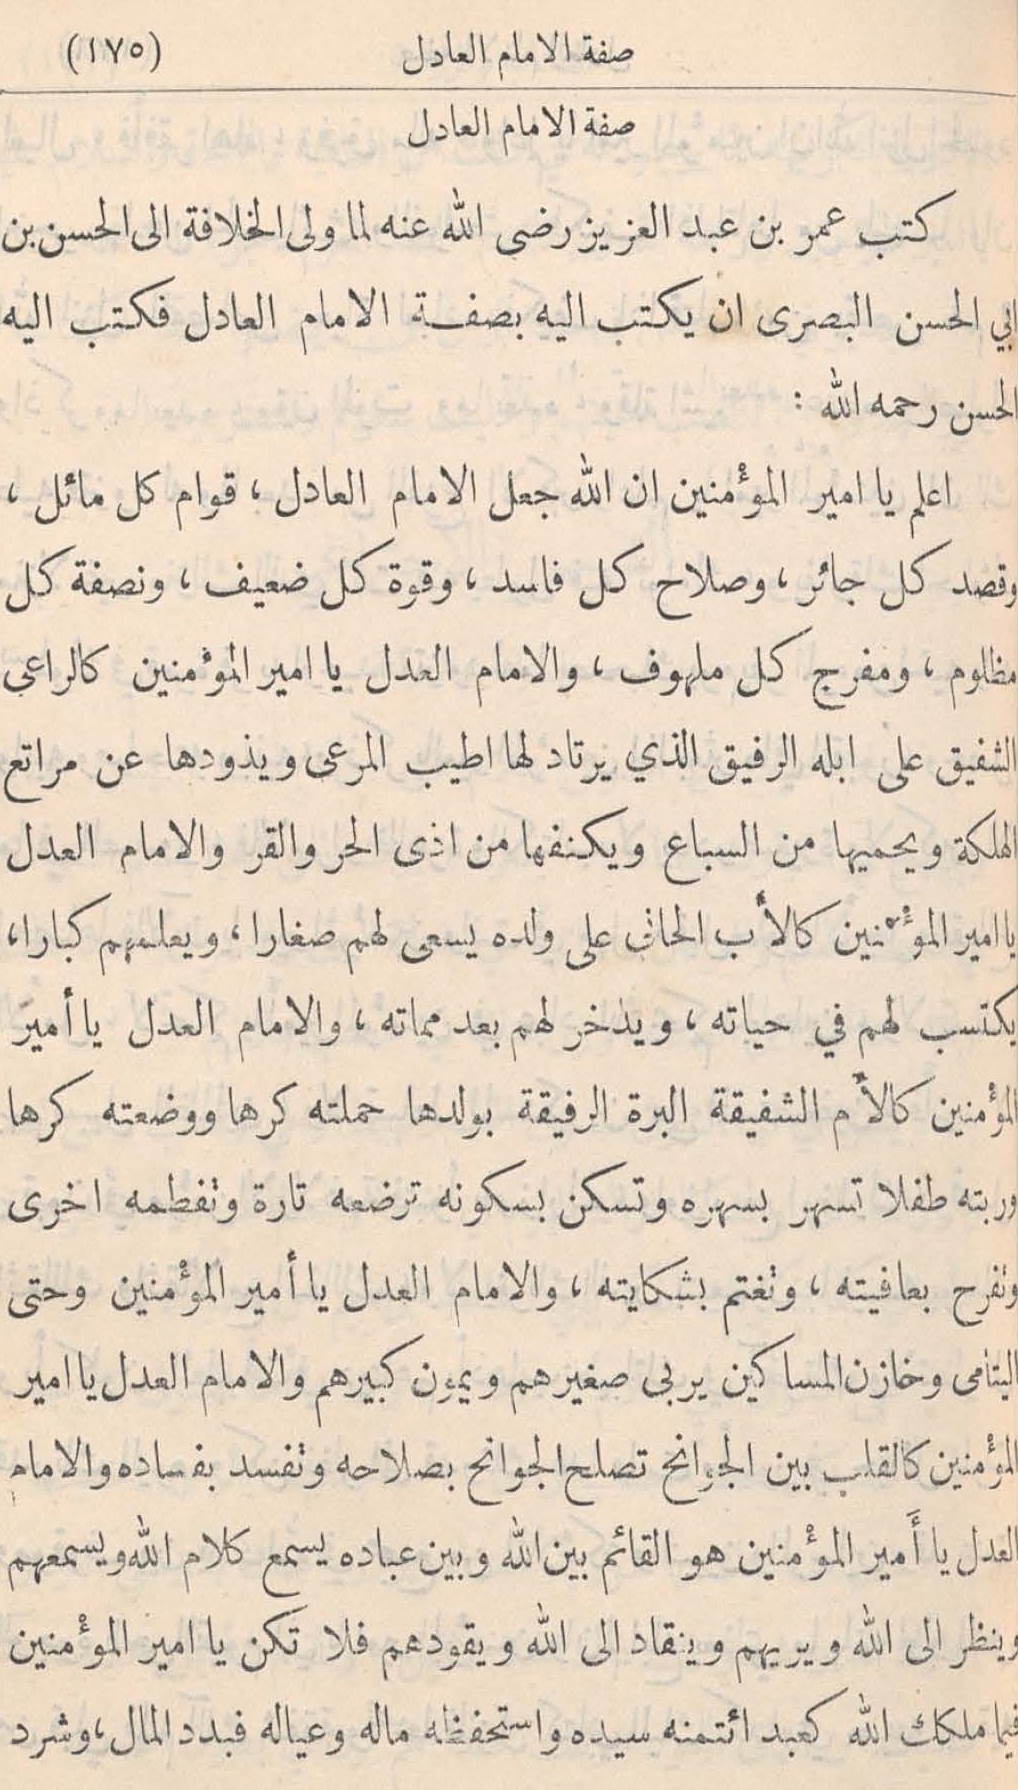 صفة الامام العادل (١٧٥)
صفة الامام العادل
كتب عمر بن عبد العزيز رضى الله عنه لما ولى الخلافة الى الحسن بن
ابي الحسن البصرى ان يكتب اليه بصفة الامام العادل فكتب اليه
الحسن رحمه الله :
اعلم يا امير المؤمنين ان الله جعل الامام العادل ، قوام كل مائل ،
وقصد كل جائر ، وصلاح كل فاسد ، وقوة كل ضعيف ، ونصفة كل
مظلوم ، ومفرج كل ملهوف ، والامام العدل يا امير المؤمنين كالراعي
الشفيق على ابله الرفيق الذي يرتاد لها اطيب المرعى ويذودها عن مراتع
الهلكة ويحميها من السباع ويكنفها من اذى الحر والقر والامام العدل
يا امير المؤمنين كالأب الحانى على ولده يسعى لهم صغارا ، ويعلمهم كبارا ،
يكتسب لهم في حياته ، ويذخر لهم بعد مماته ، والامام العدل يا أمير
المؤمنين كالأم الشفيقة البرة الرفيقة بولدها حملته كرها ووضعته كرها
وربته طفلا تسهر بسهره وتسكن بسكونه ترضعه تارة وتفطمه اخرى
وتفرح بعافيته ، وتغتم بشكايته ، والامام العدل يا أمير المؤمنين وحتى
اليتامى وخازن المساكين يربى صغيرهم ويمون كبيرهم والامام العدل يا امير
المؤمنين كالقلب بين الجوانح تصلح الجوانح بصلاحه وتفسد بفساده والامام
العدل يا أَمير المؤمنين هو القائم بين الله وبين عباده يسمع كلام الله ويسمعهم
وينظر الى الله ويريهم وينقاد الى الله ويقودهم فلا تكن يا امير المؤمنين
فيما ملكك الله كعبد ائتمنه سيده واستحفظه ماله وعياله فبدد المال ، وشرد